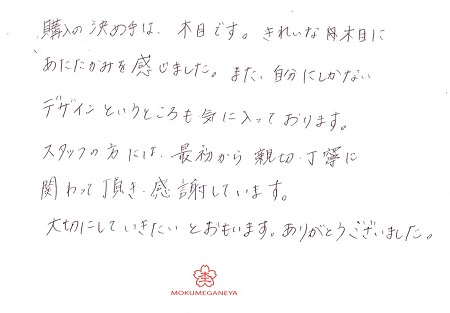 購入の決め手は、木目です。きれいな木目に
あたたかみを感じました。また、自分にしかない
デザインというところも気に入っております。
スタッフの方には、最初から親切、丁寧に
関わって頂き、感謝しています。
大切にしていきたいとおもいます。ありがとうございました。
MOKUMEGANEYA